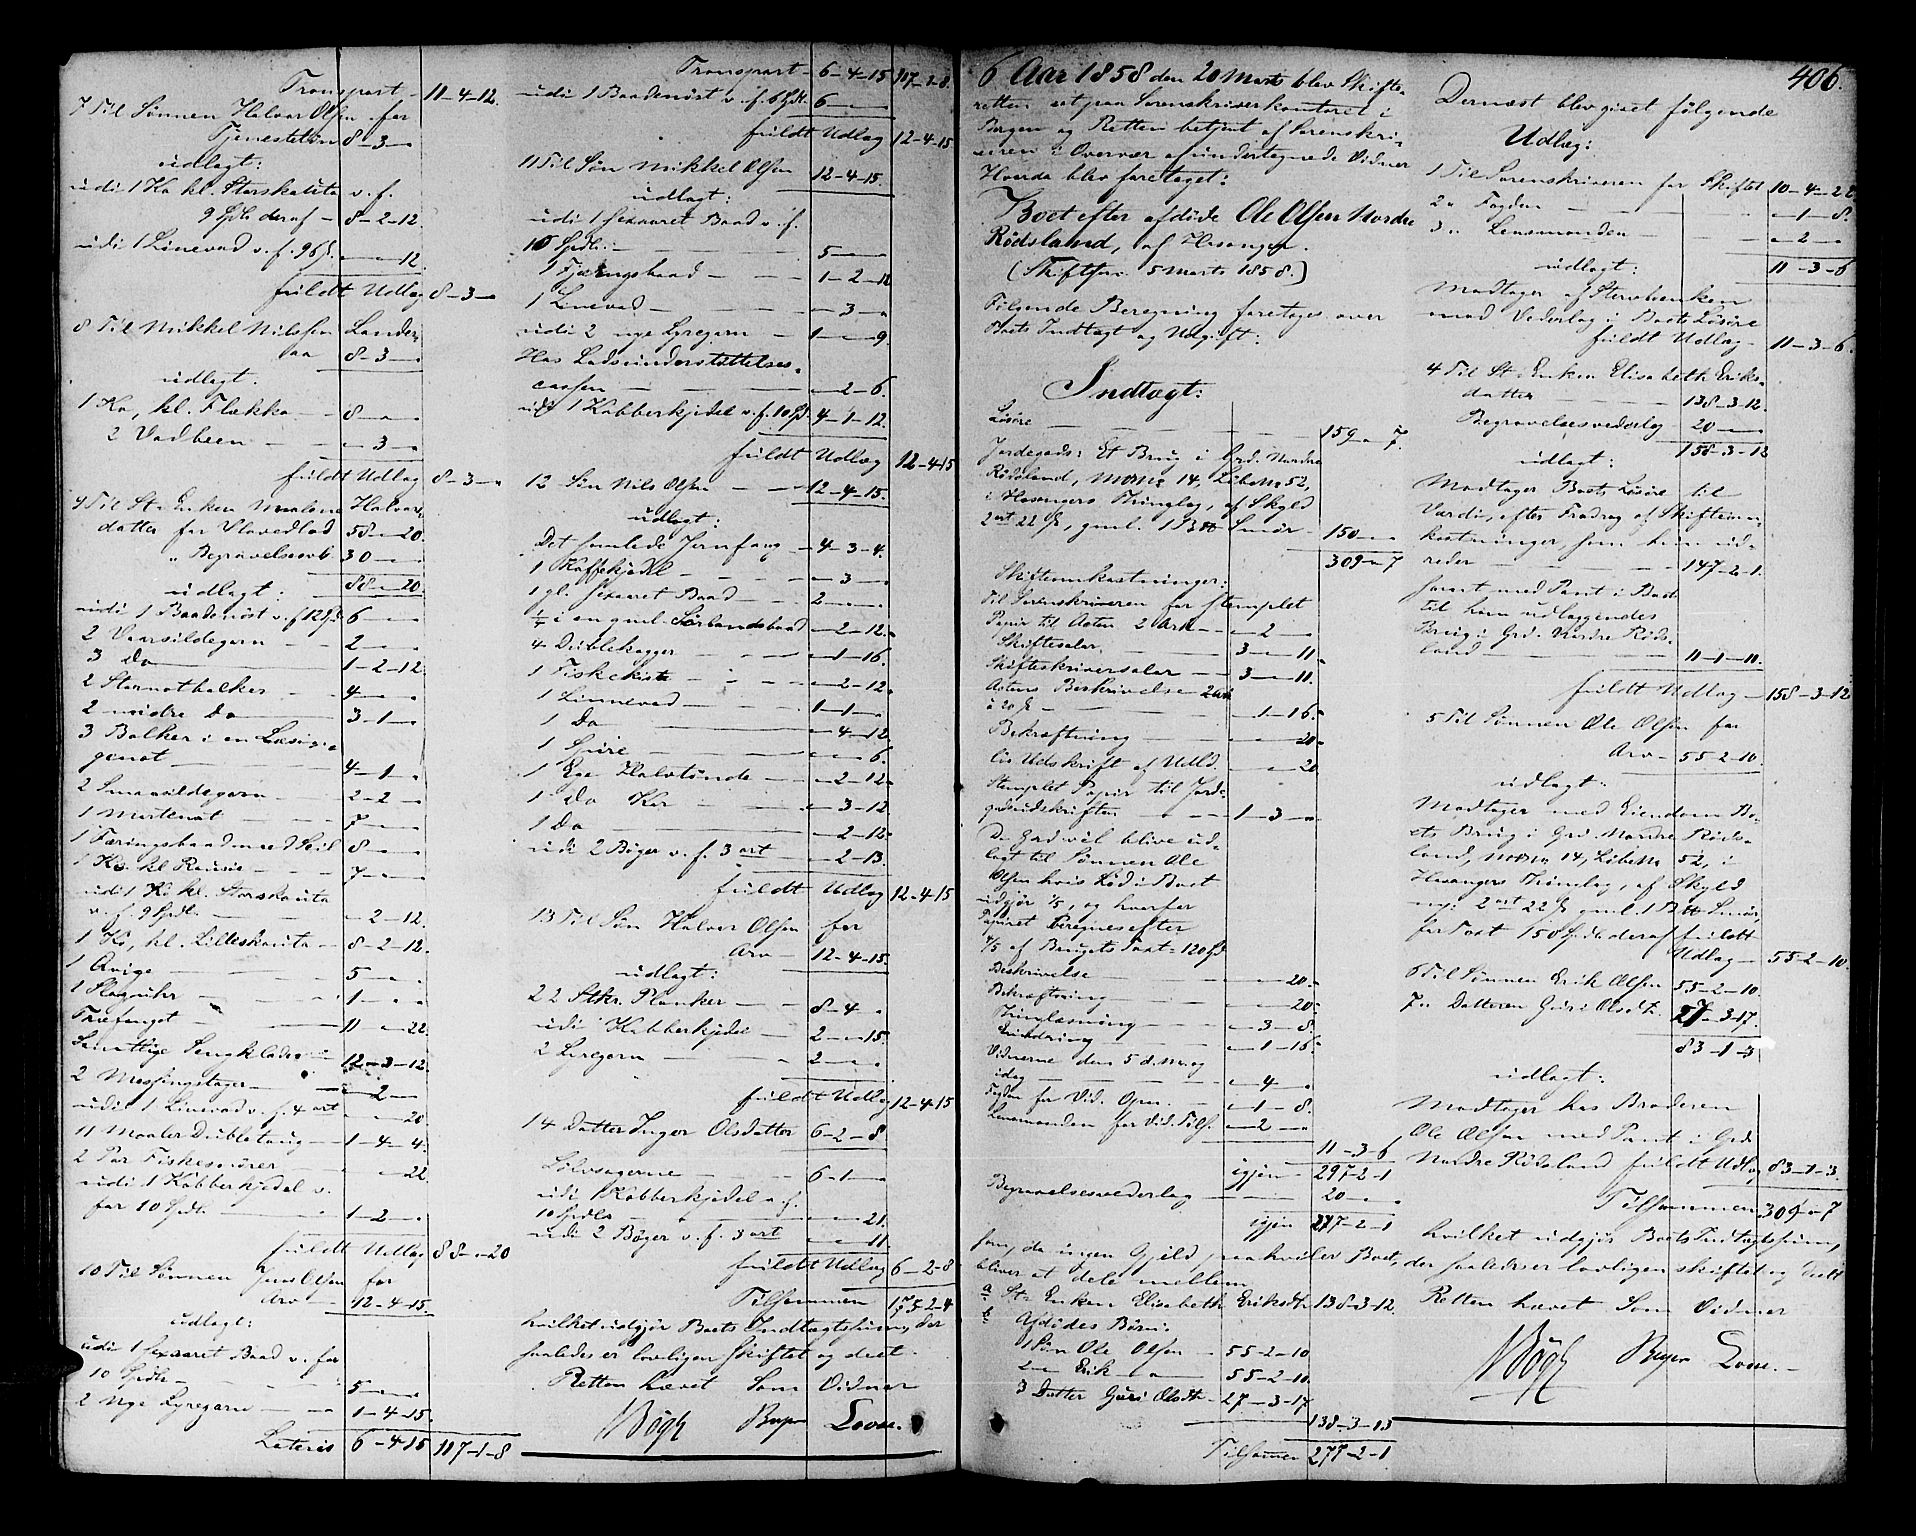 Transport - 11-4-12.
7 Til Sønnen Halvor Olsen for
Tjenesteløn 8-3-"
udlagt:
udi 1 Ko kl. Storskauta v. f.
9 Spdl. deraf - 8-2-12.
udi 1 Linevad v. f. 96 s. "-"-12.
fuldt Udlæg 8-3-"
8 Til Mikkel Nilssen
8-3-"
udlagt.
1 Ko, kl. Flækka - 8-"-"
2 Vadbeen - - "-3-"
fuldt Udlæg 8-3-"
9 Til St. Enken Halvors
datter for Hovedlod 58-"-20.
" Begravelsesvb. 30-"-"
udlagt: 88-"-20.
udi 1 Baadenøst v. f. 12 Spd. 6-"-"
2 Vaarsildegarn - - 2-"-"
3 Do 1-2-12.
2 Stornotbalker - - 4-"-"
2 mindre Do 3-1-"
3 Balker i en
genot - 4-1-"
2 Smaasildegarn - 2-2-"
1 Mortenot 7-"-"
1 Færingsbaad med Seil 8-"-"
1 Ko. kl. 7-"-"
udi 1 Ko kl. Storskauta
v. f. 9 Spdl. "-2-12.
1 Ko, kl. Lilleskauta - 8-2-12.
1 Qvige 5-"-"
1 Slaguhr 1-"-"
Træfanget 11-"-22.
Samtlige Sengklæder - 12-3-12.
2 Messingstager "-2-"
udi 1 Linevad v. f. 4 ort "-"-20
11 Maaler Dubletaug - 1-4-4.
2 Par Fiskesnører "-"-22.
udi 1 Kobberkjedel v.
for 10 Spdl. 1-2-"
fuldt Udlæg 88-"-20
10 Til Sønnen Jens Olsen for
Arv - 12-4-15.
udlagt:
udi 1 sexaaret Baad v. for
10 Spdl. 5-"-"
2 Nye Lyregarn - - 1-4-15.
Lateris 6-4-15 117-1-8
Transport - 6-4-15
udi 1 Baadenøst v. f. 6 Spdl. 6-"-"
fuldt Udlæg 12-4-15
11 Til Søn Mikkel Olsen 12-4-15.
udlagt:
udi 1 sexaaret Baad v. f.
10 Spdl. 5-"-"
1 Færingsbaad 1-2-12
1 Linevad "-3-"
udi 2 nye Lyregarn - 1-"-9
Hos Ladsunderstøttelses-
cassen "-2-6.
udi 1 Kobberkjedel v. f. 10 Spd. 4-1-12.
fuldt Udlæg 12-4-15
12 Søn Nils Olsen - - 12-4-15.
udlagt:
Det samlede Jernfang - 4-3-4.
1 Kaffekjedel "-3-"
1 gl. sexaaret Baad - 2-"-"
i en gml. Sørlandsbaad "-2-12.
4 Dublekagger "-1-16.
1 Fiskekiste "-2-12.
1 Linnevad 1-1-"
1 Do "-4-12.
1 "-"-6.
1 Ege Halvtønde "-2-12.
1 Do Kar "-3-12.
1 Do "-2-12.
udi 2 Bøger v. f. 3 ort "-2-13.
fuldt Udlæg 12-4-15
13 Til Søn Halvor Olsen for
Arv - 12-4-15.
udlagt:
22 Stkr. Planker 8-4-"
udi 1 Kobberkjedel 2-"-15.
2 Lyregarn 2-"-"
fuldt Udlæg 12-4-15
14 Datter Inger Olsdatter 6-2-8
Sølvsagerne 6-1-"
udi 1 Kobberkjedel v. f.
10 Spdlr. "-"-21.
udi 2 Bøger v. f. 3 ort "-"-11.
fuldt Udlæg 6-2-8
Tilsammen 175-2-4
hvilket udgjør Boets Indtægtssum, der
saaledes er lovligen skiftet og deelt.
Retten hævet Som Vidner
Bøgh
406.
6 Aar 1858 den 20 Marts blev Skifte-
retten sat paa Sorenskriverkontoret i
Borgen og Retten betjent af Sorenskri-
veren i Overvær af undertegnede Vidner
Hvorda blev foretaget:
Boet efter afdøde Ole Olsen Nordre
Rødsland, af
(Skiftsfor. 5 Marts 1858.)
Følgende Beregning foretages over
Boets Indtægt og Udgift:
Indtægt:
Løsøre 159-"-7.
Jordegods: Et Brug i Grd. Nordre
Rødsland, MNo 14, Løbe No 52,
i Thinglag, af Skyld
2 ort 22 s, gml. 1 Smør - 150-"-"
309-"-7
Skifteomkostninger:
Til Sorenskriveren for stemplet
Papir til Acten 2 Ark - "-2-"
Skiftesalær 3-"-11.
Skifteskriversalær - 3-"-11.
Actens Beskrivelse 2 Ark
à 20 s "-1-16.
Bekræftning "-"-20.
lig Udskrift af Udl. "-"-20
Stemplet Papir til Jorde-
godsudskriften 1-3-"
Da Gaden vil blive ud-
lagt til Sønnen Ole
Olsen hvis Lod i Boet
udgjør 1/5, og hvorfor
Papiret beregnes efter
4/5 af Brugets Taxt = 120 Spd
Beskrivelse "-"-20.
Bekræftning "-"-20.
Thinglæsning "-3-8.
Erindring "-1-16.
Vidnerne den 5 d. M. og
idag "-4-"
Fogden for Vid. Gjen. "-1-8.
Lensmanden for Vid. Tils. "-2-"
11-3-6
igjen - 297-2-1
Begravelsesvederlag 20-"-"
igjen 277-2-1
som, da ingen Gjeld paahviler Boet,
bliver at dele mellem
a St. Enken Elisabeth Eriksdt. 138-3-12.
b Afdødes Børn:
1 Søn Ole Olsen - 55-2-10
2 " Erik " 55-2-10.
3 Datter Guri Olsdt. - 27-3-17
138-3-13
Tilsammen 277-2-1
Dernæst blev gjort følgende
Udlæg:
1 Til Sorenskriveren for Skiftet 10-4-22
2 " Fogden "-1-8.
3 " Lensmanden "-2-"
udlagt: 11-3-6
Modtager af Stervbenken
mod Vederlag i Boets Løsøre
fuldt Udlæg - 11-3-6.
4 Til St. Enken Elisabeth Eriks-
datter 138-3-12.
Begravelsesvederlag 20-"-"
udlagt: 158-3-12
Modtager Boets Løsøre til
Værdi, efter Fradrag af Skifteom-
kostninger som hun ud-
reder 147-2-1.
samt med Pant i Boet
til ham udlæggendes
Brug i Grd. Nordre Røds-
land 11-1-11.
fuldt Udlæg - 158-3-12
5 Til Sønnen Ole Olsen for
Arv - 55-2-10.
udlagt:
Modtager med Eiendom Bo-
ets Brug i Grd. Nordre Røds-
land, MNo 14, Løbe No 52, i
Thinglag, af Skyld
ny: 2 ort 22 s gml. 1 Smør,
for Taxt 150 Spdl. deraf fuldt
Udlæg - 55-2-10.
6 Til Sønnen Erik Olsen 55-2-10.
7 " Datteren Guri Olsdt. 27-3-17.
83-1-3
udlagt:
Modtager hos Broderen
Ole Olsen med Pant i Grd.
Nordre Rødsland fuldt Udlæg 83-1-3.
Tilsammen 309-"-7
hvilket udgjør Boets Indtægtssum,
der saaledes er lovligen skiftet og deelt
Retten hævet Som Vidner
Bøgh